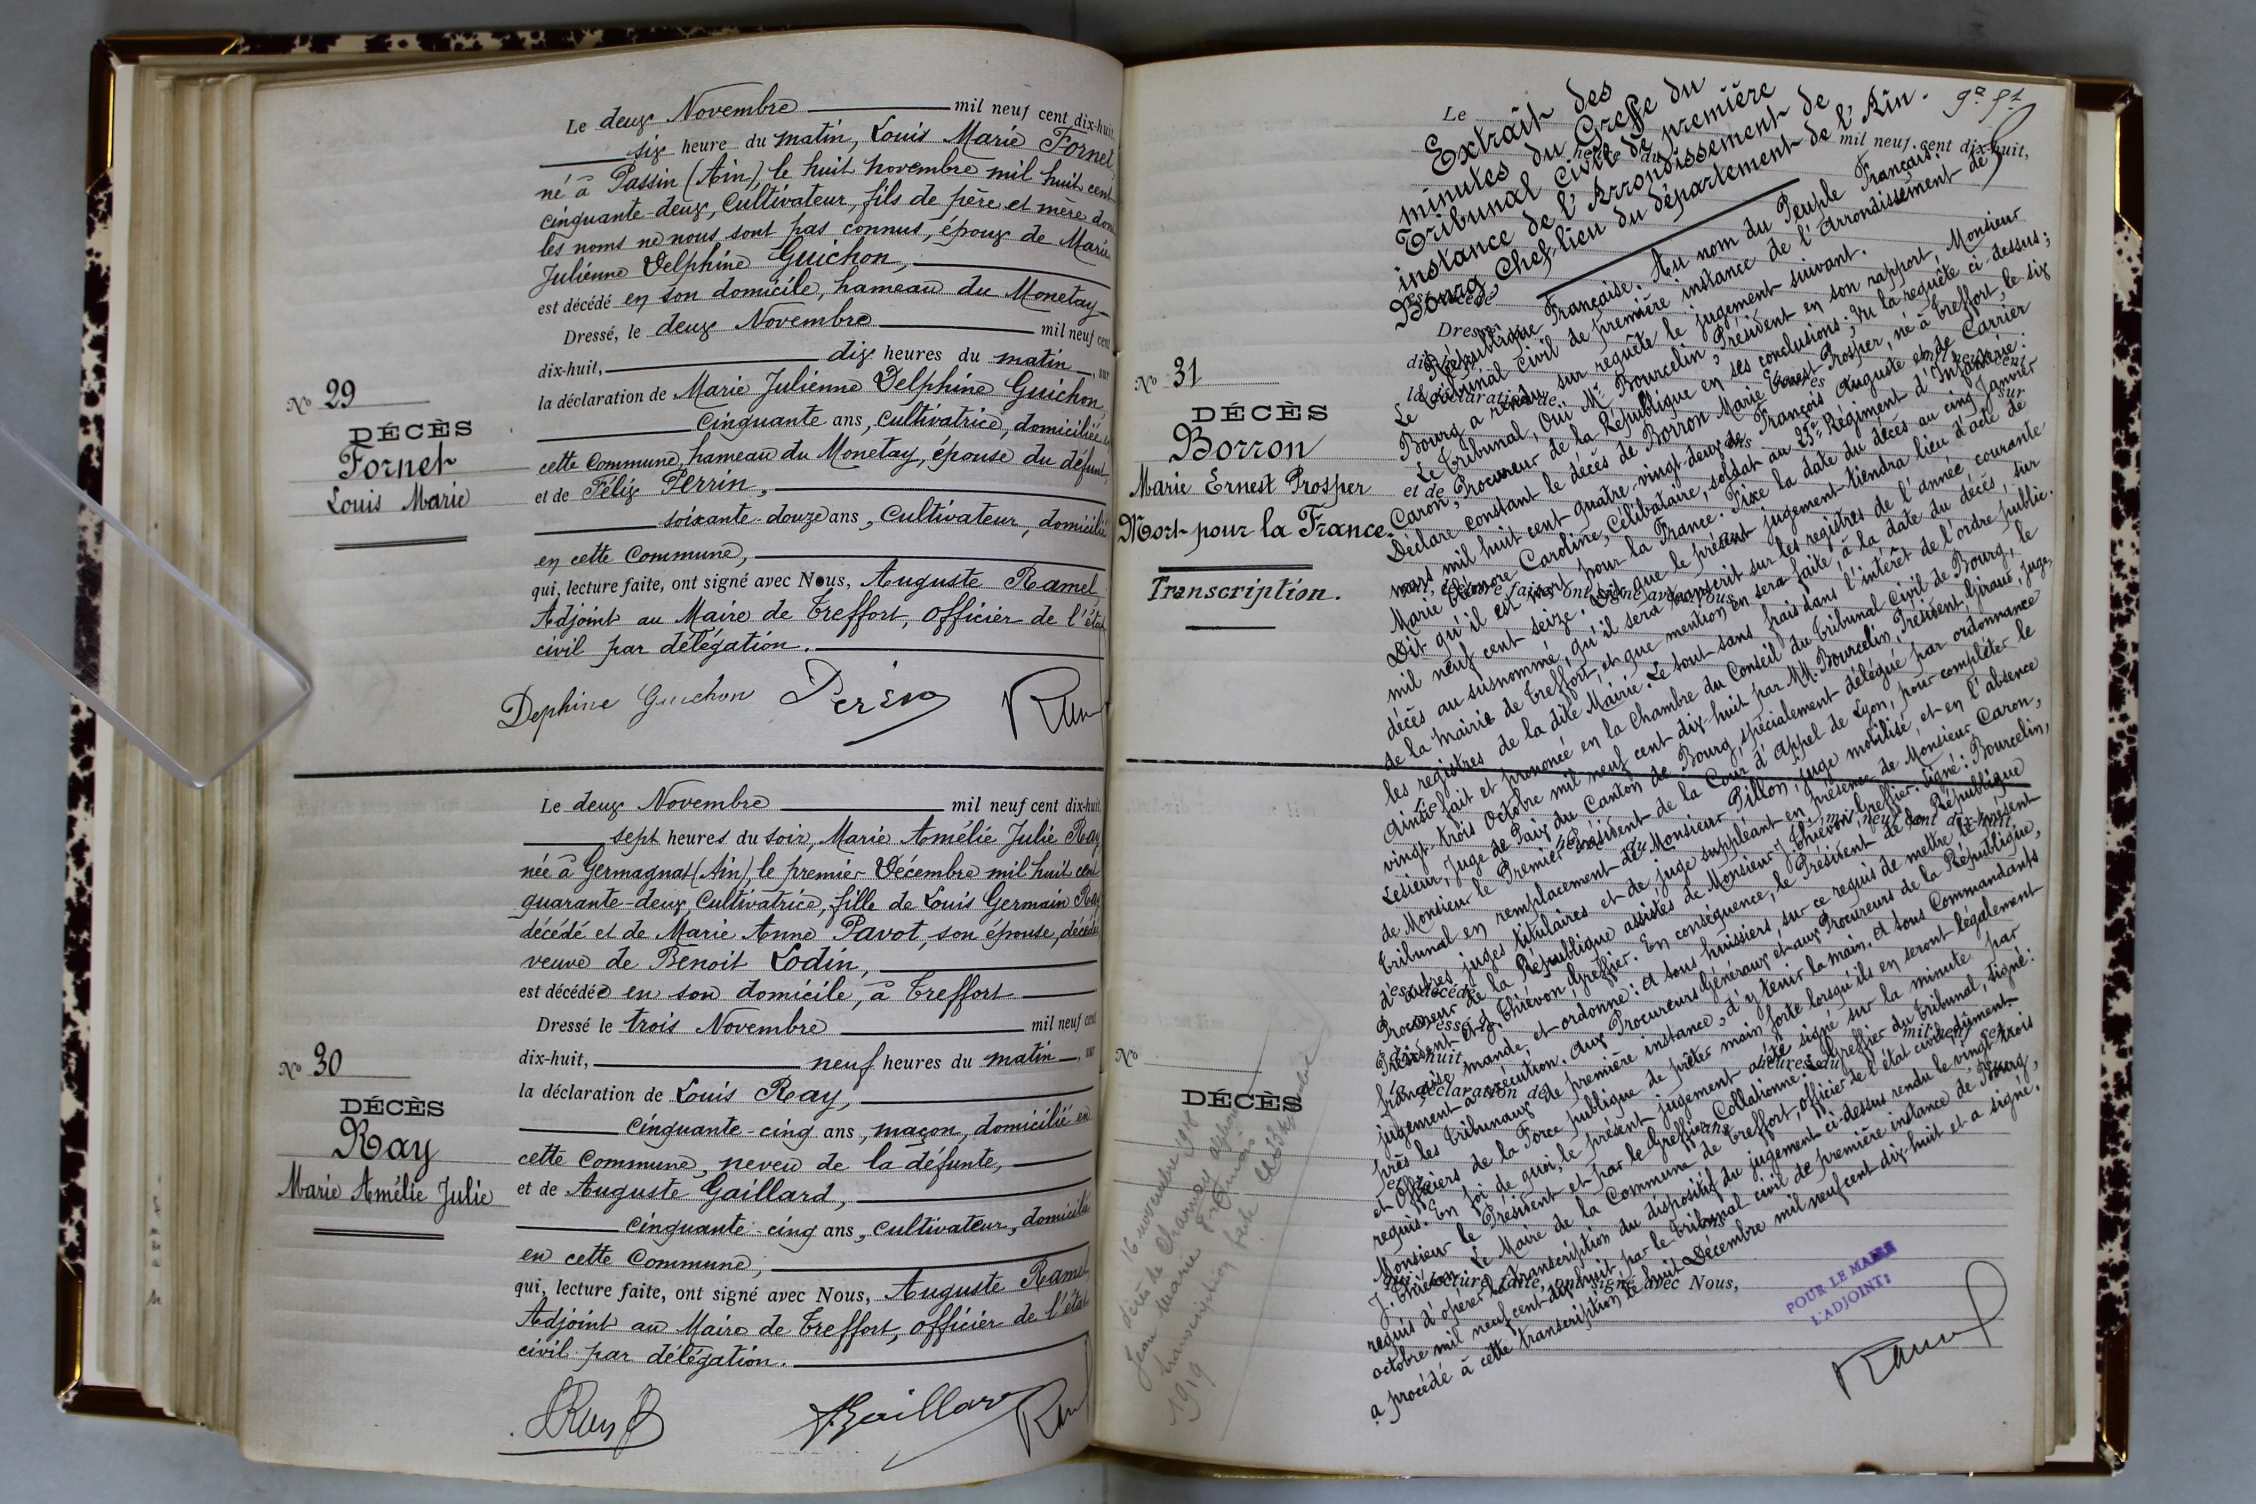 Le deux Novembre mil neuf cent dix-huit,
six heure du matin, Louis Marie Fornet,
né à Passin (Ain), le huit novembre mil huit cent
cinquante-deux, Cultivateur, fils de père et mère dont
les noms ne nous sont pas connus, époux de Marie
Julienne Delphine Guichon,
est décédé en son domicile, hameau du Monetay
Dressé, le deux Novembre mil neuf cent
dix-huit, dix heures du matin, sur
la déclaration de Marie Julienne Delphine Guichon,
Cinquante ans, Cultivatrice, domiciliée en
cette Commune, hameau du Monetay, épouse du défunt,
et de Félix Perrin,
soixante-douze ans, Cultivateur, domicilié
en cette Commune,
qui, lecture faite, ont signé avec Nous, Auguste Ramel,
Adjoint au Maire de Treffort, officier de l'état
civil par délégation.
Dephine Guichon Perrin
No 29
DÉCÈS
Fornet
Louis Marie
Le deux Novembre mil neuf cent dix-huit,
sept heures du soir, Marie Amélie Julie Ray
née à Germagnat (Ain), le premier Décembre mil huit cent
quarante-deux, Cultivatrice, fille de Louis Germain Ray
décédé et de Marie Anne Pavot, son épouse, décédée
veuve de Benoit Lodin,
est décédée en son domicile, à Treffort
Dressé le trois Novembre mil neuf cent
dix-huit, neuf heures du matin, sur
la déclaration de Louis Ray,
Cinquante-cinq ans, maçon, domicilié en
cette Commune, neveu de la défunte,
et de Auguste Gaillard,
Cinquante-cinq ans, Cultivateur, domicilié
en cette Commune,
qui, lecture faite, ont signé avec Nous, Auguste Ramel
Adjoint au Maire de Treffort, officier de l'état
civil par délégation.
LRay AGaillard
No 30
DÉCÈS
Ray
Marie Amélie Julie
No 31
DÉCÈS
Borron
Marie Ernest Prosper
Mort pour la France.
Transcription.
Extrait des
minutes du Greffe du
Tribunal Civil de première
instance de l'Arrondissement de
Bourg Chef lieu du département de l'Ain.
République Française. Au nom du Peuple Français.
Le Tribunal Civil de première instance de l'Arrondissement de
Bourg a rendu sur requête le jugement suivant.
Le Tribunal, Ouï Mr Bourcelin, Président en son rapport, Monsieur
Caron, Procureur de la République en ses conclusions; Vu la requête ci dessus;
Déclare constant le décès de Borron Marie Ernest Prosper, né à Treffort, le six
mars mil huit cent quatre-vingt-deux, de François Auguste et de Carrier
Marie Eléonore Caroline, Célibataire, soldat au 23e Régiment d'Infanterie.
Dit qu'il est mort pour la France. Fixe la date du décès au cinq Janvier
mil neuf cent seize. Dit que le présent jugement tiendra lieu d'acte de
décès au susnommé, qu'il sera transcrit sur les registres de l'année courante
de la Mairie de Treffort, et que mention en sera faite à la date du décès sur
les registres de la dite Mairie. Le tout sans frais dans l'intérêt de l'ordre public.
Ainsi fait et prononcé en la Chambre du Conseil du Tribunal Civil de Bourg, le
vingt-trois Octobre mil neuf cent dix-huit par MM. Bourcelin, Président, Giraud, juge,
Lesieur, Juge de Paix du Canton de Bourg, spécialement délégué par ordonnance
de Monsieur le Premier Président de la Cour d'Appel de Lyon, pour compléter le
Tribunal en remplacement de Monsieur Pillon, juge mobilisé, et en l'absence
d'autres juges titulaires et de juge suppléant en présence de Monsieur Caron,
Procureur de la République assistés de Monsieur J. Thiévon, Greffier. Signé: Bourcelin,
Président et J. Thiévon Greffier. En conséquence, le Président de la République
française mande et ordonne: A tous huissiers, sur ce requis de mettre le présent
jugement à exécution. Aux Procureurs Généraux et aux Procureurs de la République,
près les Tribunaux de première instance, d'y tenir la main, à tous Commandants
et Officiers de la Force publique de prêter main forte lorsqu'ils en seront légalement
requis. En foi de quoi, le présent jugement a été signé sur la minute par
Monsieur le Président et par le Greffier. Collationné: Le greffier du Tribunal, signé:
J. Thiévon. Le Maire de la Commune de Treffort, officier de l'état civil, dûment
requis d'opérer la transcription du dispositif du jugement ci-dessus rendu le vingt-trois
octobre mil neuf cent dix-huit par le Tribunal civil de première instance de Bourg,
a procédé à cette transcription le huit Décembre mil neuf cent dix-huit et a signé.
POUR LE MAIRE
L'ADJOINT:
No
DÉCÈS
16 novembre
décès de Charnay
Jean Marie
transcription faite
1919